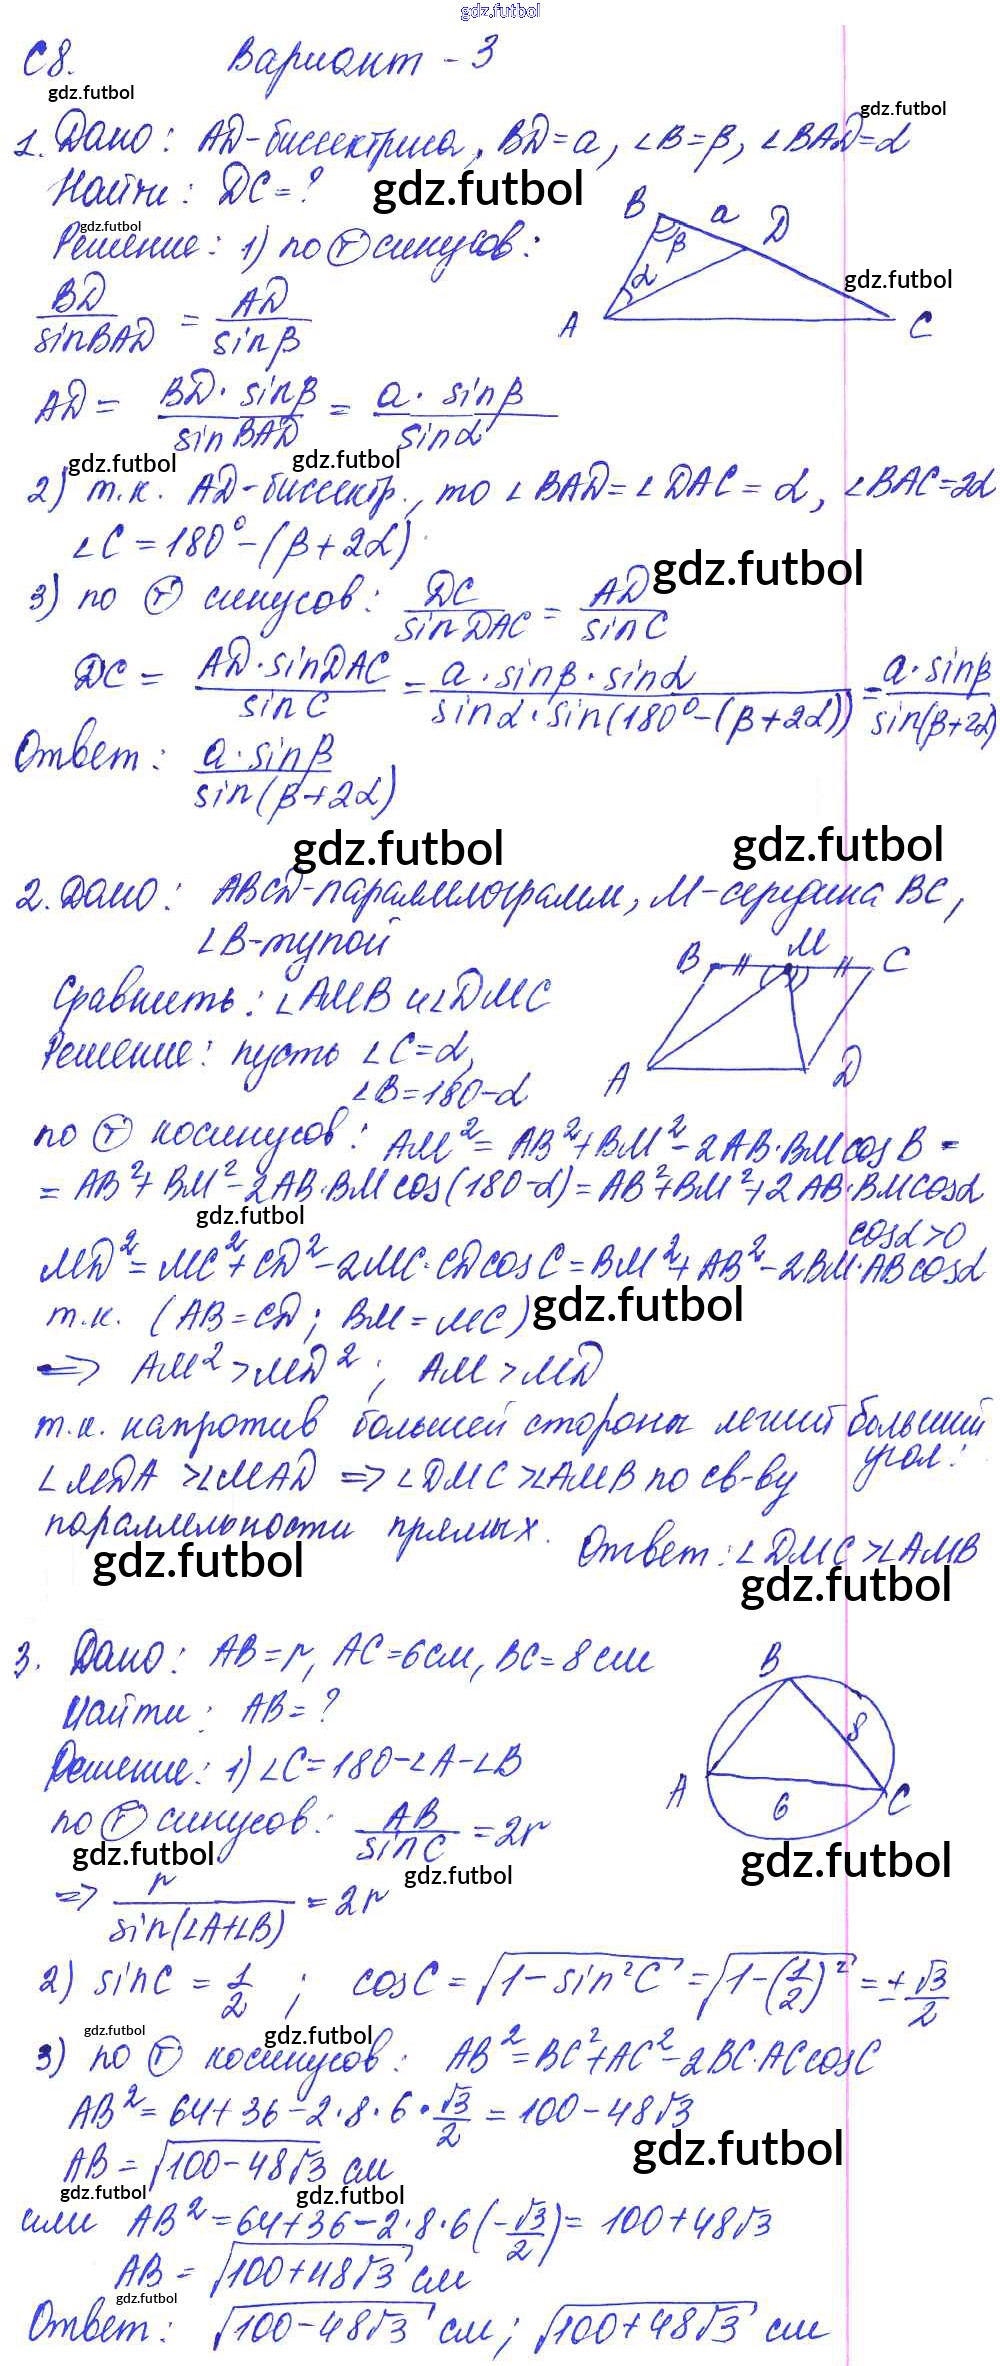 gdz.futbol
С8. Вариант - 3
gdz.futbol
gdz.futbol
1. Дано: AD-биссектриса, BD=a, ∠B=β, ∠BAD=α
Найти: DC=?
gdz.futbol
gdz.futbol
B a D
β
α
A C
Решение: 1) по Ⓣ синусов:
gdz.futbol
BD/sinBAD = AD/sinβ
AD = BD·sinβ/sinBAD = a·sinβ/sinα
gdz.futbol gdz.futbol
2) т.к. AD-биссектр., то ∠BAD=∠DAC=α, ∠BAC=2α
∠C=180°-(β+2α)
gdz.futbol
3) по Ⓣ синусов: DC/sinDAC = AD/sinC
DC = AD·sinDAC/sinC = a·sinβ·sinα/sinα·sin(180°-(β+2α)) = a·sinβ/sin(β+2α)
Ответ: a·sinβ/sin(β+2α)
gdz.futbol gdz.futbol
2. Дано: ABCD-параллелограмм, M-середина BC,
∠B-тупой
B M C
A D
Сравнить: ∠AMB и ∠DMC
Решение: пусть ∠C=α,
∠B=180-α
по Ⓣ косинусов: AM²=AB²+BM²-2AB·BMcosB=
=AB²+BM²-2AB·BMcos(180-α)=AB²+BM²+2AB·BMcosα
gdz.futbol
cosα>0
MD²=MC²+CD²-2MC·CDcosC=BM²+AB²-2BM·ABcosα
т.к. (AB=CD; BM=MC)
gdz.futbol
=> AM²>MD²; AM>MD
т.к. напротив большей стороны лежит больший
угол:
∠MDA>∠MAD => ∠DMC>∠AMB по св-ву
параллельности прямых.
Ответ: ∠DMC>∠AMB
gdz.futbol
gdz.futbol
3. Дано: AB=r, AC=6см, BC=8см
Найти: AB=?
B
8
A 6 C
Решение: 1) ∠C=180-∠A-∠B
по Ⓣ синусов: AB/sinC = 2r
gdz.futbol gdz.futbol gdz.futbol
=> r/sin(∠A+∠B) = 2r
2) sinC = 1/2; cosC = √(1-sin²C) = √(1-(1/2)²) = ±√3/2
gdz.futbol gdz.futbol
3) по Ⓣ косинусов: AB²=BC²+AC²-2BC·ACcosC
AB²=64+36-2·8·6·√3/2=100-48√3
gdz.futbol
AB=√(100-48√3) см
gdz.futbol gdz.futbol
или AB²=64+36-2·8·6(-√3/2)=100+48√3
AB=√(100+48√3) см
gdz.futbol
Ответ: √(100-48√3) см; √(100+48√3) см